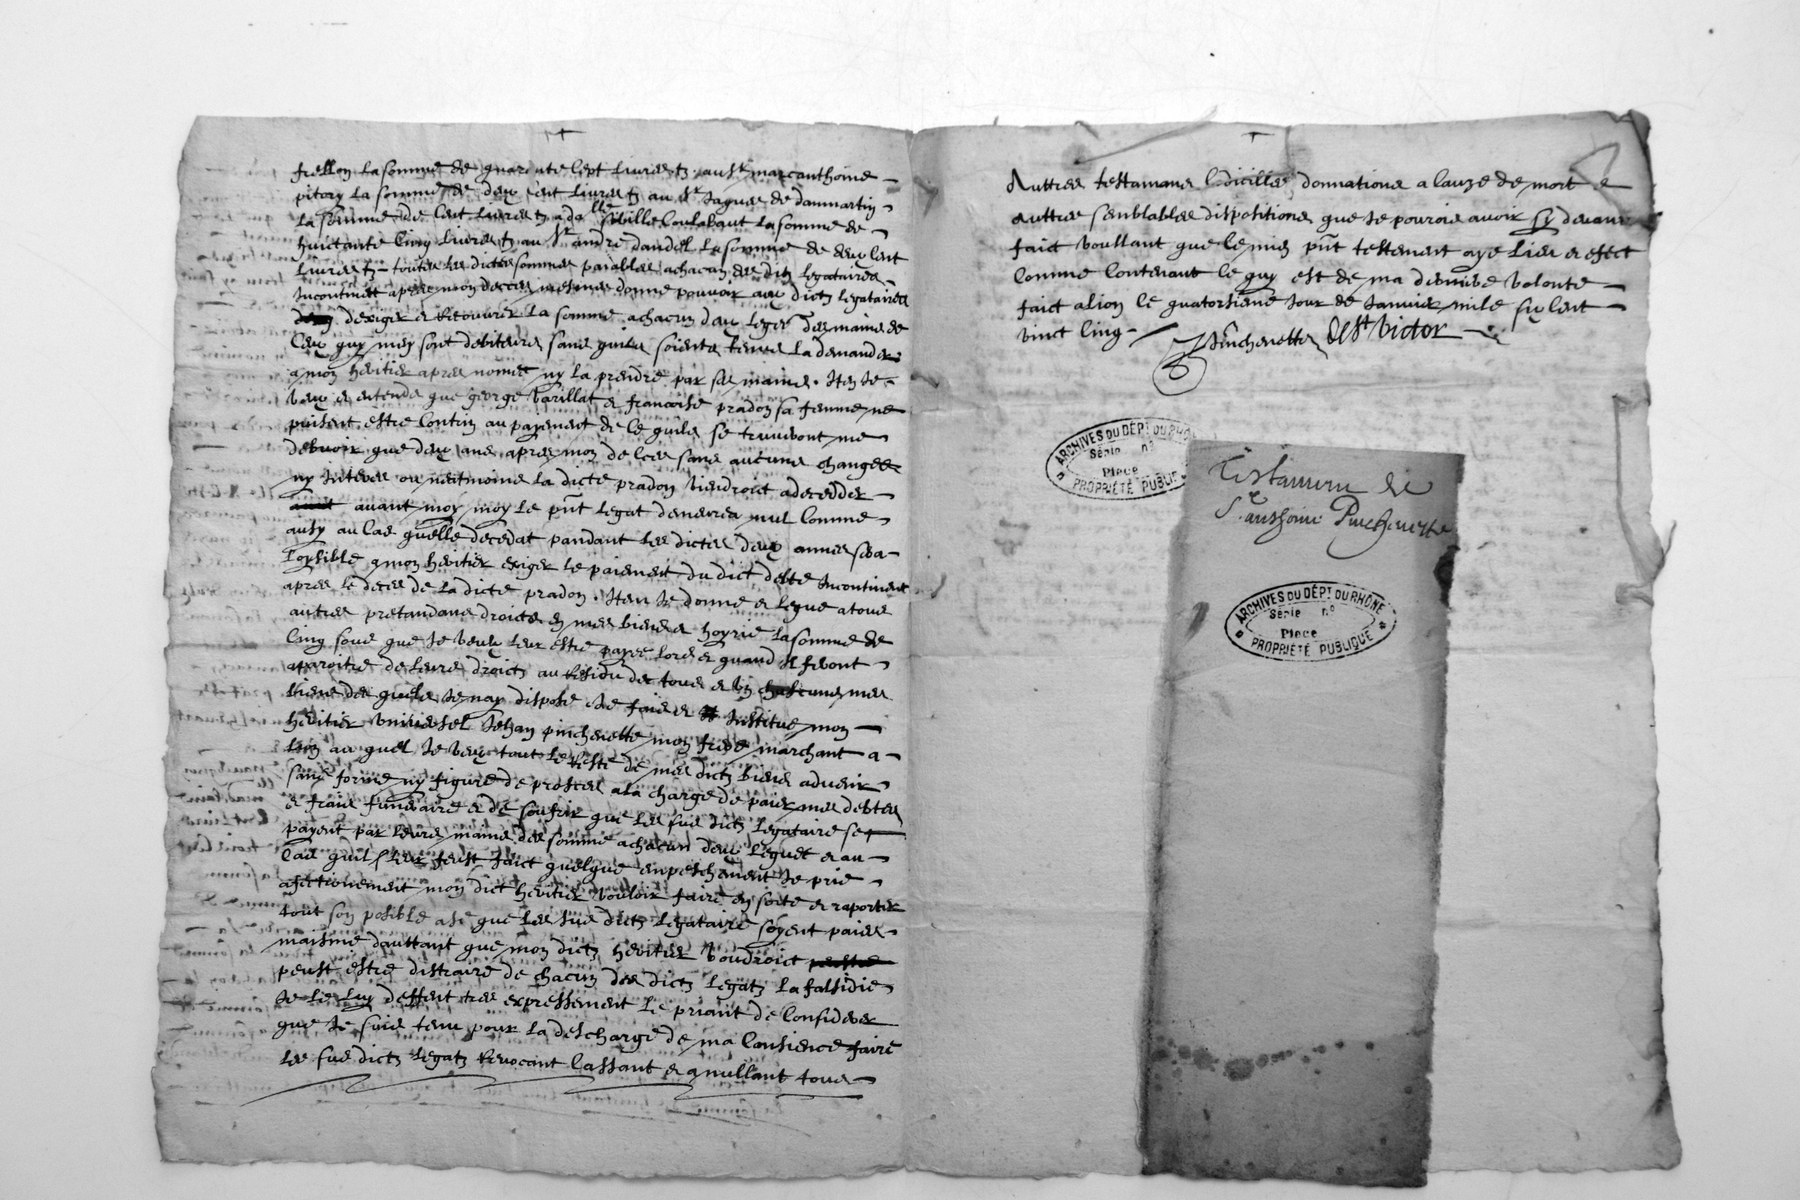 frellon la somme de quarante sept livres tz au sr marcanthoine
pitory la somme de deux cent livres tz au sr Jaques de dammartin
la somme de cent livres tz a dalle sibille la somme de
huictante cinq livres tz au sr andre dandel la somme de deux cent
livres tz toutes les dictes sommes paiables a chacun des dits legataires
Incontinent apres mon deces mesmes donne pouvoir aux dictz legataires
dexiger et recouvrer la somme a chacun deux leger des mains de
ceux quy mey sont debiteurs sans quils soients tenus la demander
a mon heritier apres nomme ny la prendre par ses mains. Iten Je
veux et entends que george varillat et francoise pradon sa femme ne
puisent estre contrin au payement de ce quils se trouveront me
debvoir que deux ans apres mon deces sans aucune changes
ny Interes ou neitmoins la dicte pradon viendroict a deceder
avant moy moy le pnt legat demeurea nul comme
ausy au cas quelle decedat pandant les dictes deux annes sera
loysible a mon heritier exiger le paiement du dict debte Incontinent
apres le deces de la dicte pradon. Iten Je donne et legue a tous
autres pretandans droicts en mes biens et hoyrie la somme de
cinq sous que Je veux leur estre payee lors et quand Il feront
aparoitre de leurs droicts au Residu de tous et un chascuns mes
biens des quels Je nay dispose Je fais et Institue mon
heritier universel Jehan pincherette mon frere marchant a
lion au quel Je veux tout le Reste de mes dictz biens advenir
sans forme ny figure de proses a la charge de paier mes debtes
et frais funeraire et de soufrir que les sus dictz legataire se
payent par leurs mains des somme a chacun deux leguet et au
cas quil leur feust faict quelque enpeschement Je prie
afectionement mon dict heritier vouloir faire en sorte et raporter
tout son posible a se que les sus dictz legataire soyent paies
maisme dauttant que mon dictz heritier voudroict
peust estre distraire de chacun des dictz legatz la falsidie
Je le luy deffent tres expressement le priant de considerer
que Je suis tenu pour la descharge de ma consience faire
les sus dictz legatz Revocant cassant et anullant tous
Auttres testamans Codicilles donnations a cauze de mort et
auttres senblables dispositions que Je pourois avoir sy devant
faict voullant que le mien pnt testement aye lieu et effect
comme contenant ce quy est de ma derniere volonte
faict a lion le quatorsieme Jour de Janvier mile six cent
vinct cinq
Pincherette de St Victor
ARCHIVES DU DÉPT DU RHÔNE
Série n°
Pièce
PROPRIÉTÉ PUBLIQUE
Testament de
Sr anthoine Pincherette
ARCHIVES DU DÉPT DU RHÔNE
Série n°
Pièce
PROPRIÉTÉ PUBLIQUE